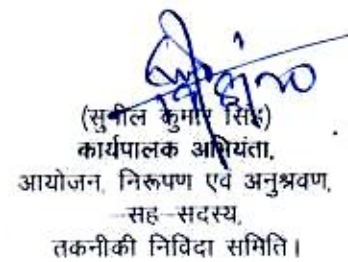 (सुनील कुमार सिंह)
कार्यपालक अभियंता,
आयोजन, निरूपण एवं अनुश्रवण,
-सह-सदस्य,
तकनीकी निविदा समिति।